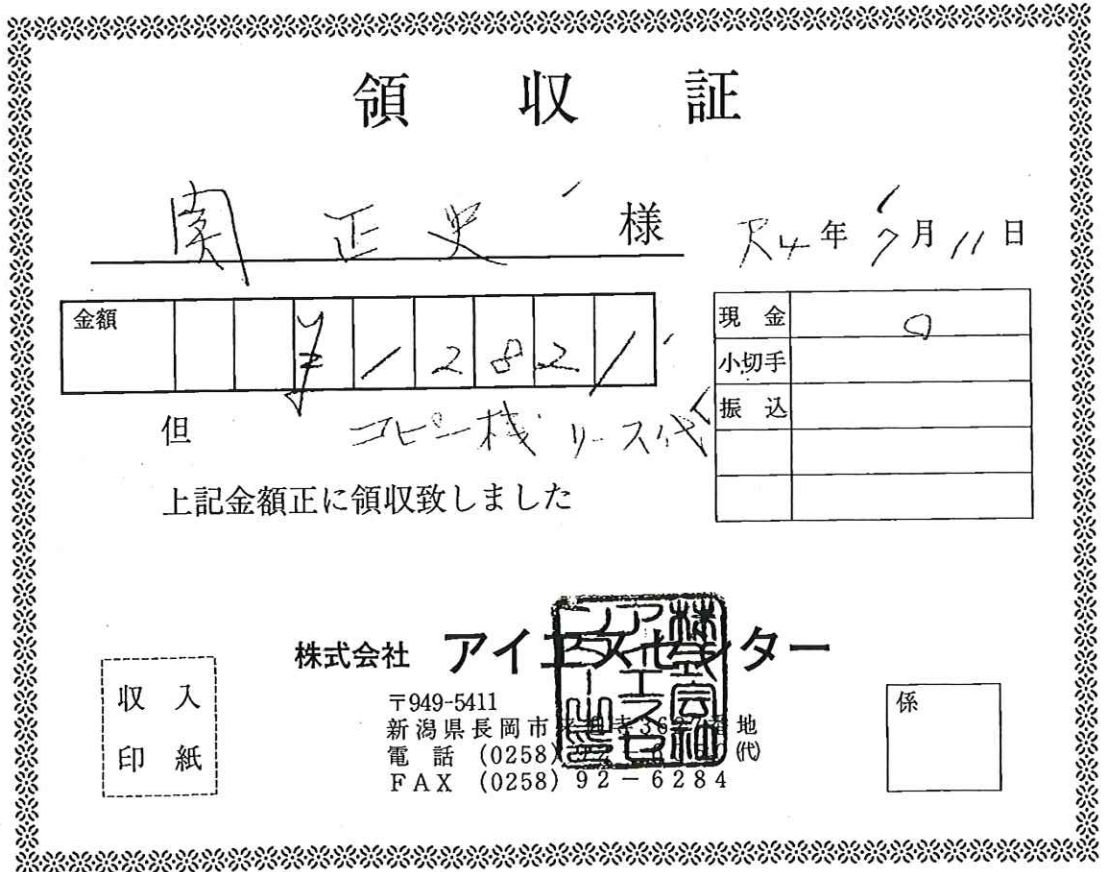 領収証
関 正史 様
R4年7月11日
金額 ¥12821
現金
小切手
振込
但 コピー機リース代
上記金額正に領収致しました
株式会社 アイエスセンター
〒949-5411
新潟県長岡市来迎寺3627番地
電話 (0258) (代)
FAX (0258) 92-6284
収入
印紙
係